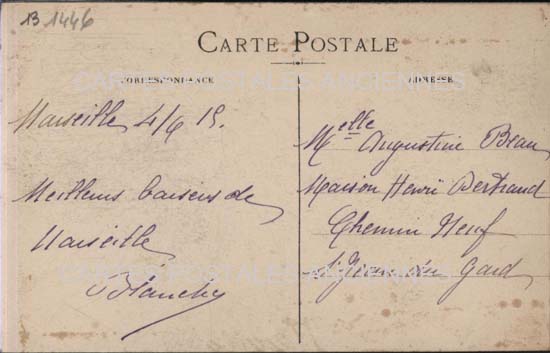 B 1446
CARTE POSTALE
CORRESPONDANCE
ADRESSE
CARTES POSTALES ANCIENNES
Marseille 4/6 15.
Meilleurs baisers de
Marseille
Blanche
Melle Augustine Beau
Maison Henri Bertrand
Chemin Neuf
St Jean du Gard
CARTES POSTALES ANCIENNES